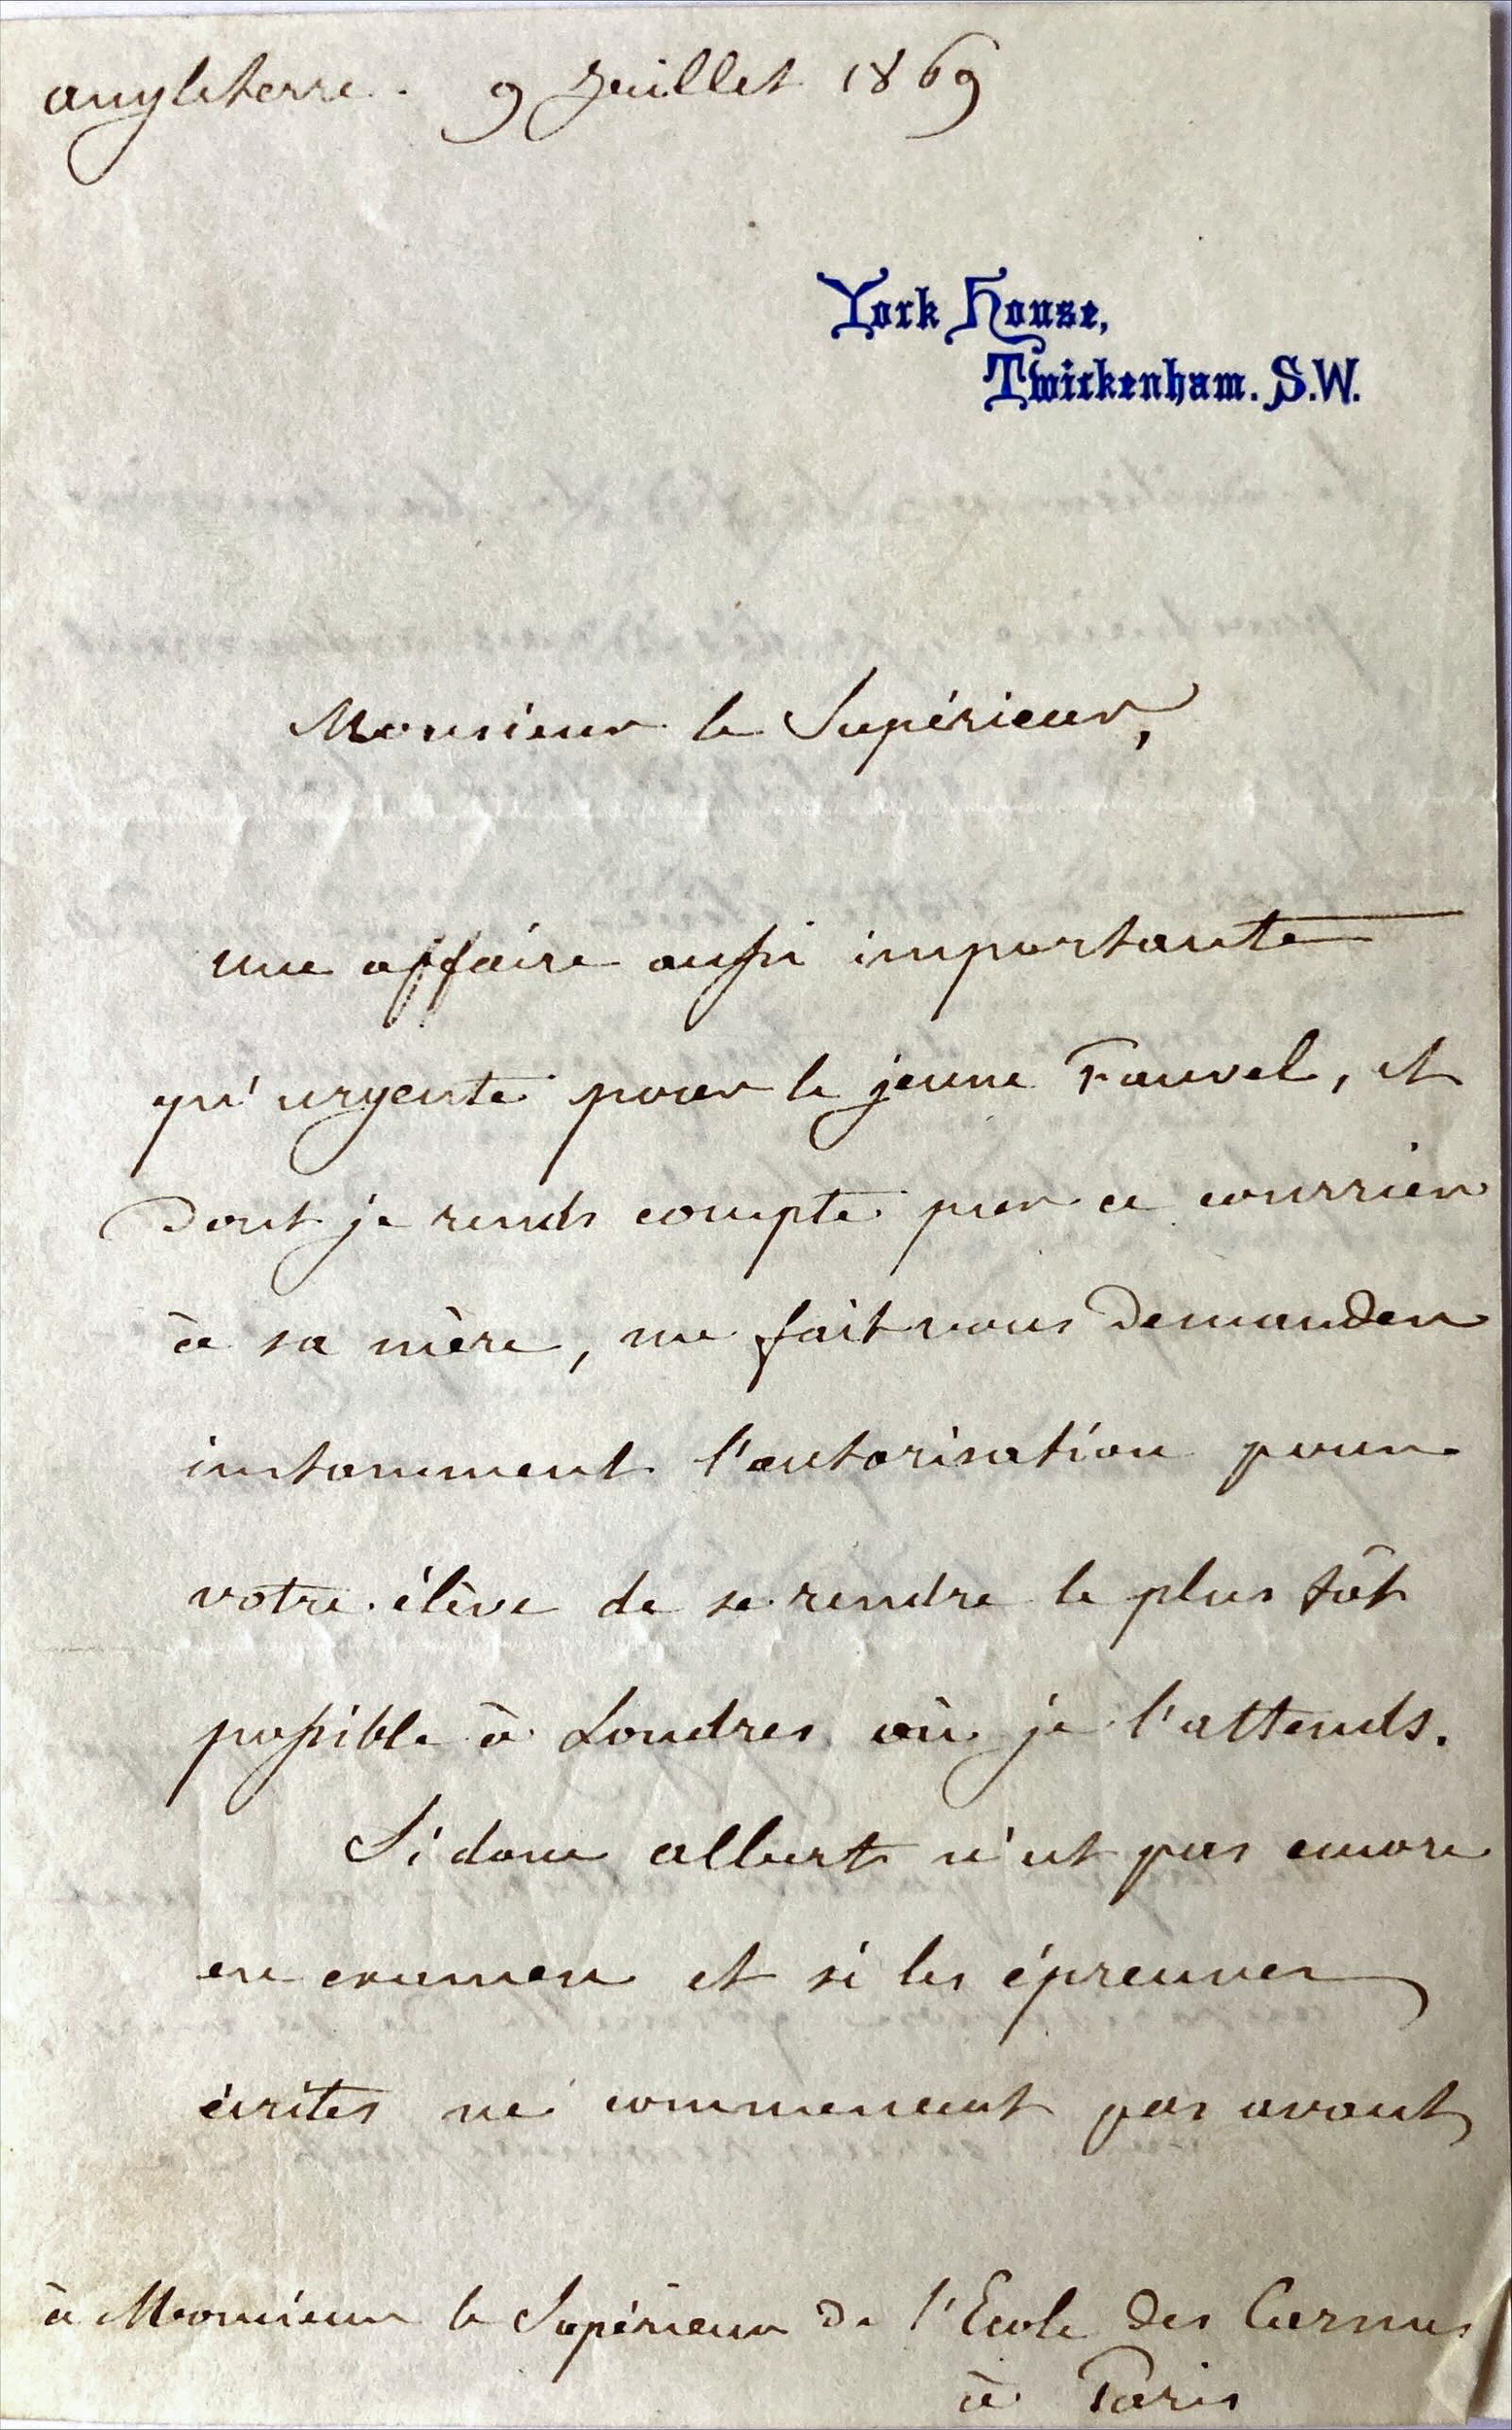 angleterre. 9 Juillet 1869
York House,
Twickenham. S.W.
Monsieur le Supérieur,
une affaire aussi importante
qu'urgente pour le jeune Fauvel, et
dont je rends compte par ce courrier
à sa mère, me fait vous demander
instamment l'autorisation pour
votre élève de se rendre le plus tôt
possible à Londres où je l'attends.
Si donc albert n'est pas encore
en examen et si les épreuves
écrites ne commencent pas avant
à Monsieur le Supérieur de l'Ecole des Carmes
à Paris